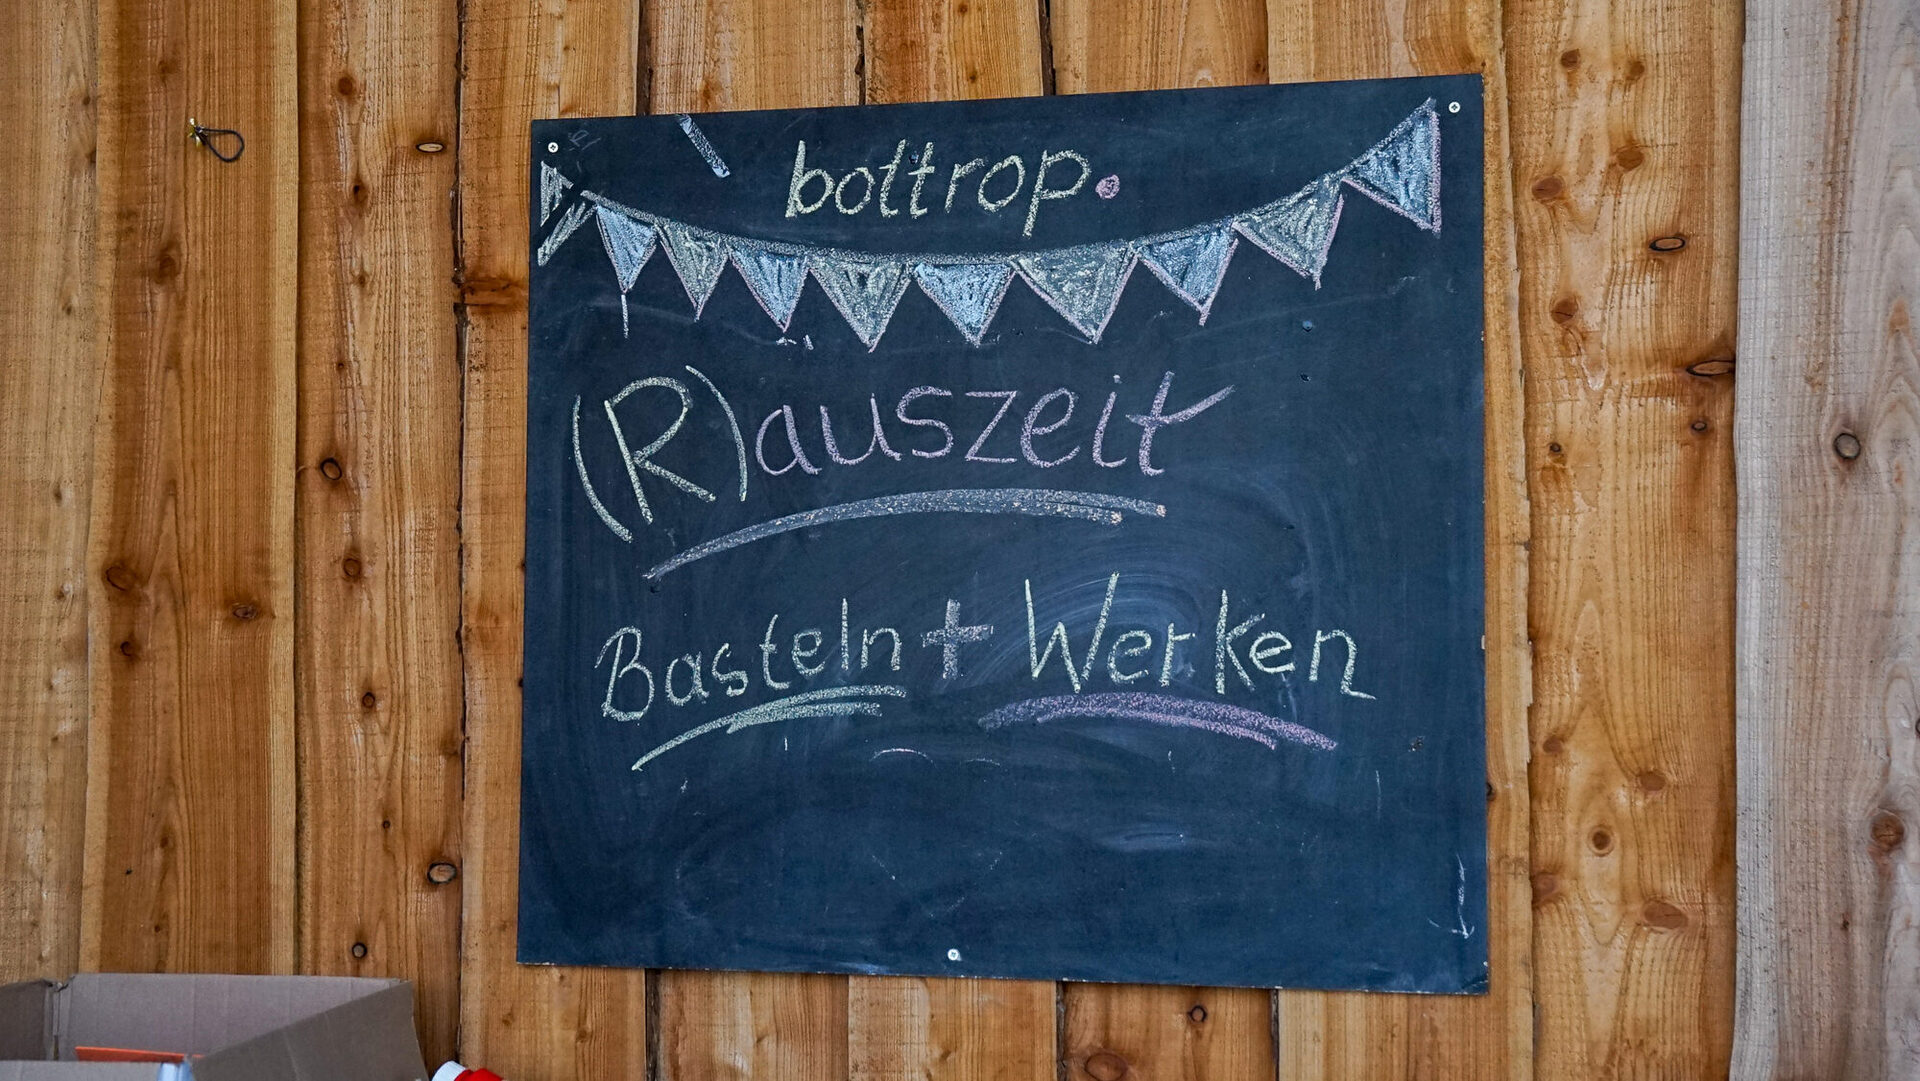 bottrop.
(R)auszeit
Basteln + Werken